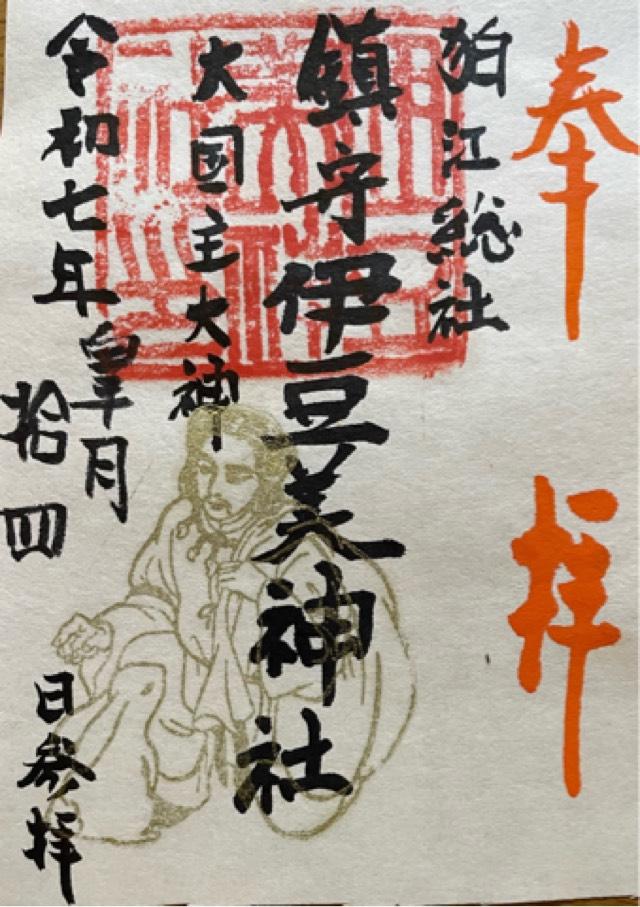 奉拝
狛江総社
鎮守伊豆美神社
大国主大神
令和七年皐月
拾四
日参拝